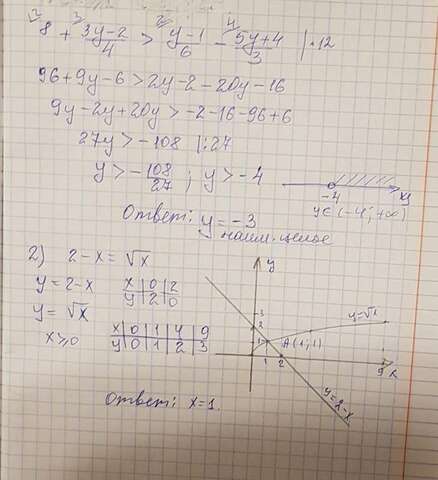 8 + 3y-2/4 > y-1/6 - 5y+4/3 | · 12
96+9y-6>2y-2-20y-16
9y-2y+20y>-2-16-96+6
27y>-108 |:27
y>-108/27 ; y>-4
-4
y∈(-4; +∞)
Ответ: y=-3
наим. целое
2) 2-x=√x
y=2-x
x|0|2
y|2|0
y=√x
x≥0
x|0|1|4|9
y|0|1|2|3
y
3
2
1
A(1;1)
y=√x
1 2 9 x
y=2-x
Ответ: x=1.